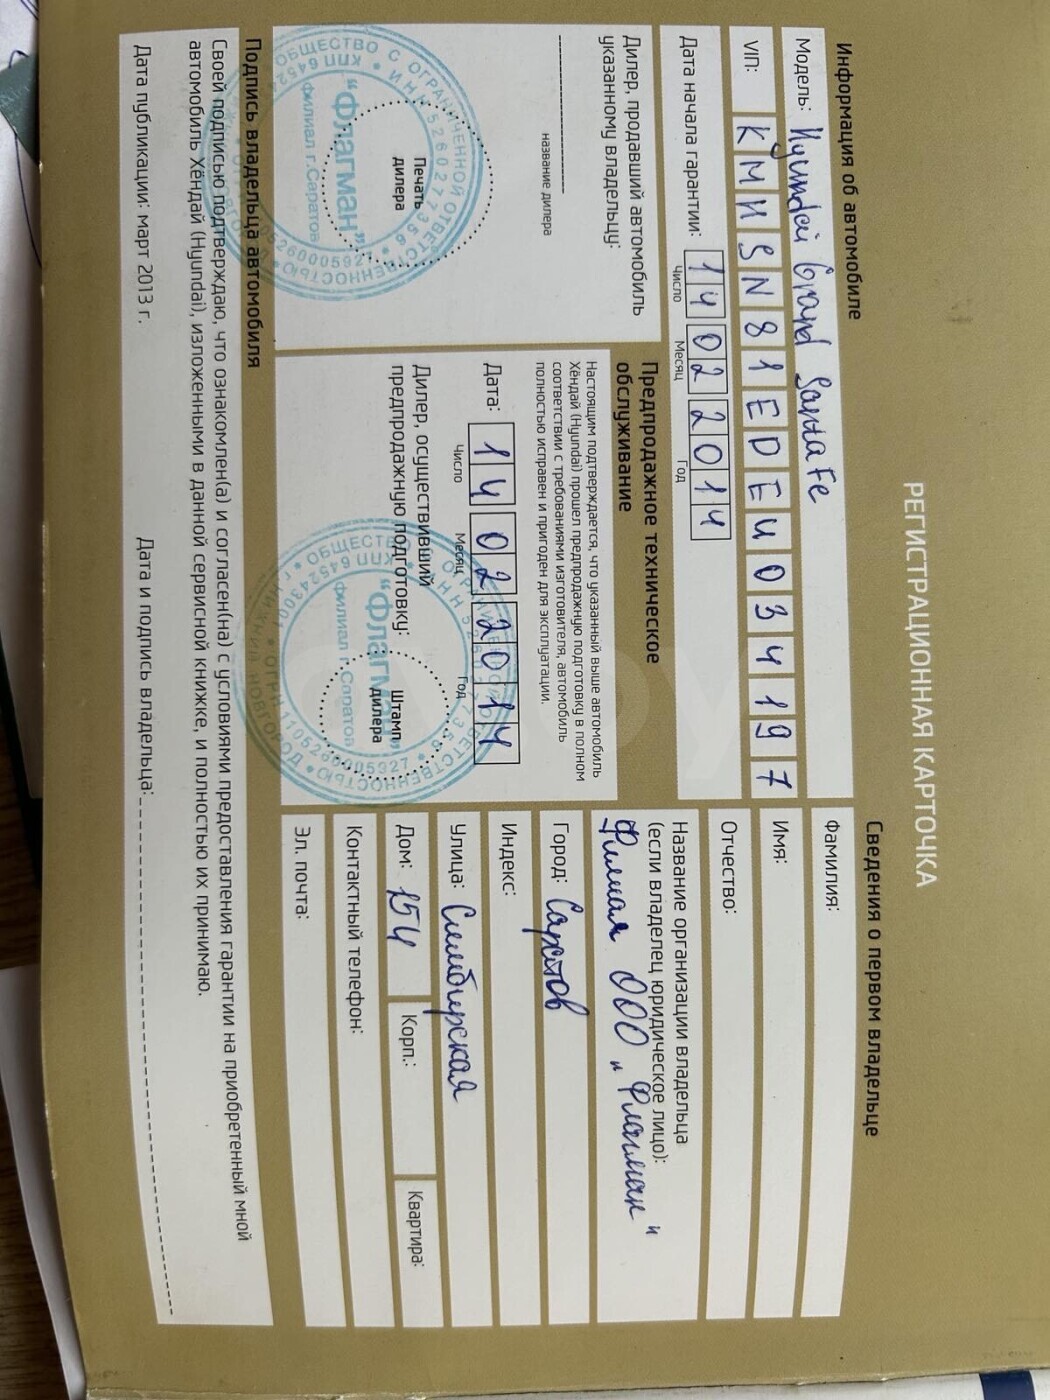 РЕГИСТРАЦИОННАЯ КАРТОЧКА
Информация об автомобиле
Модель: Hyundai Grand Santa Fe
VIN: KMHSN81EDEU034197
Дата начала гарантии: 14 02 2014
Число Месяц Год
Дилер, продавший автомобиль
указанному владельцу:
название дилера
Печать
дилера
ОБЩЕСТВО С ОГРАНИЧЕННОЙ ОТВЕТСТВЕННОСТЬЮ
"Флагман"
филиал г.Саратов
Предпродажное техническое
обслуживание
Настоящим подтверждается, что указанный выше автомобиль
Хёндай (Hyundai) прошел предпродажную подготовку в полном
соответствии с требованиями изготовителя, автомобиль
полностью исправен и пригоден для эксплуатации.
Дата: 14 02 2014
Число Месяц Год
Дилер, осуществивший
предпродажную подготовку:
Штамп
дилера
"Флагман"
филиал г.Саратов
Сведения о первом владельце
Фамилия:
Имя:
Отчество:
Название организации владельца
(если владелец юридическое лицо):
Филиал ООО "Флагман"
Город: Саратов
Индекс:
Улица: Симбирская
Дом: 154 Корп.: Квартира:
Контактный телефон:
Эл. почта:
Подпись владельца автомобиля
Своей подписью подтверждаю, что ознакомлен(а) и согласен(на) с условиями предоставления гарантии на приобретенный мной
автомобиль Хёндай (Hyundai), изложенными в данной сервисной книжке, и полностью их принимаю.
Дата публикации: март 2013 г. Дата и подпись владельца: